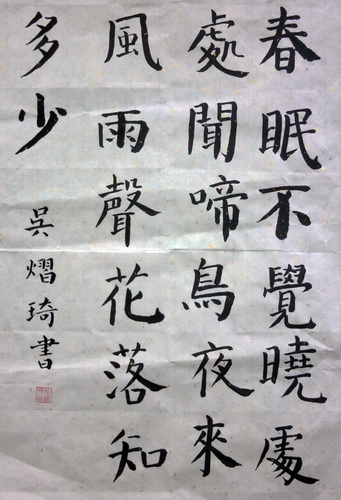 春眠不覺曉處
處聞啼鳥夜來
風雨聲花落知
多少
吳熠琦書